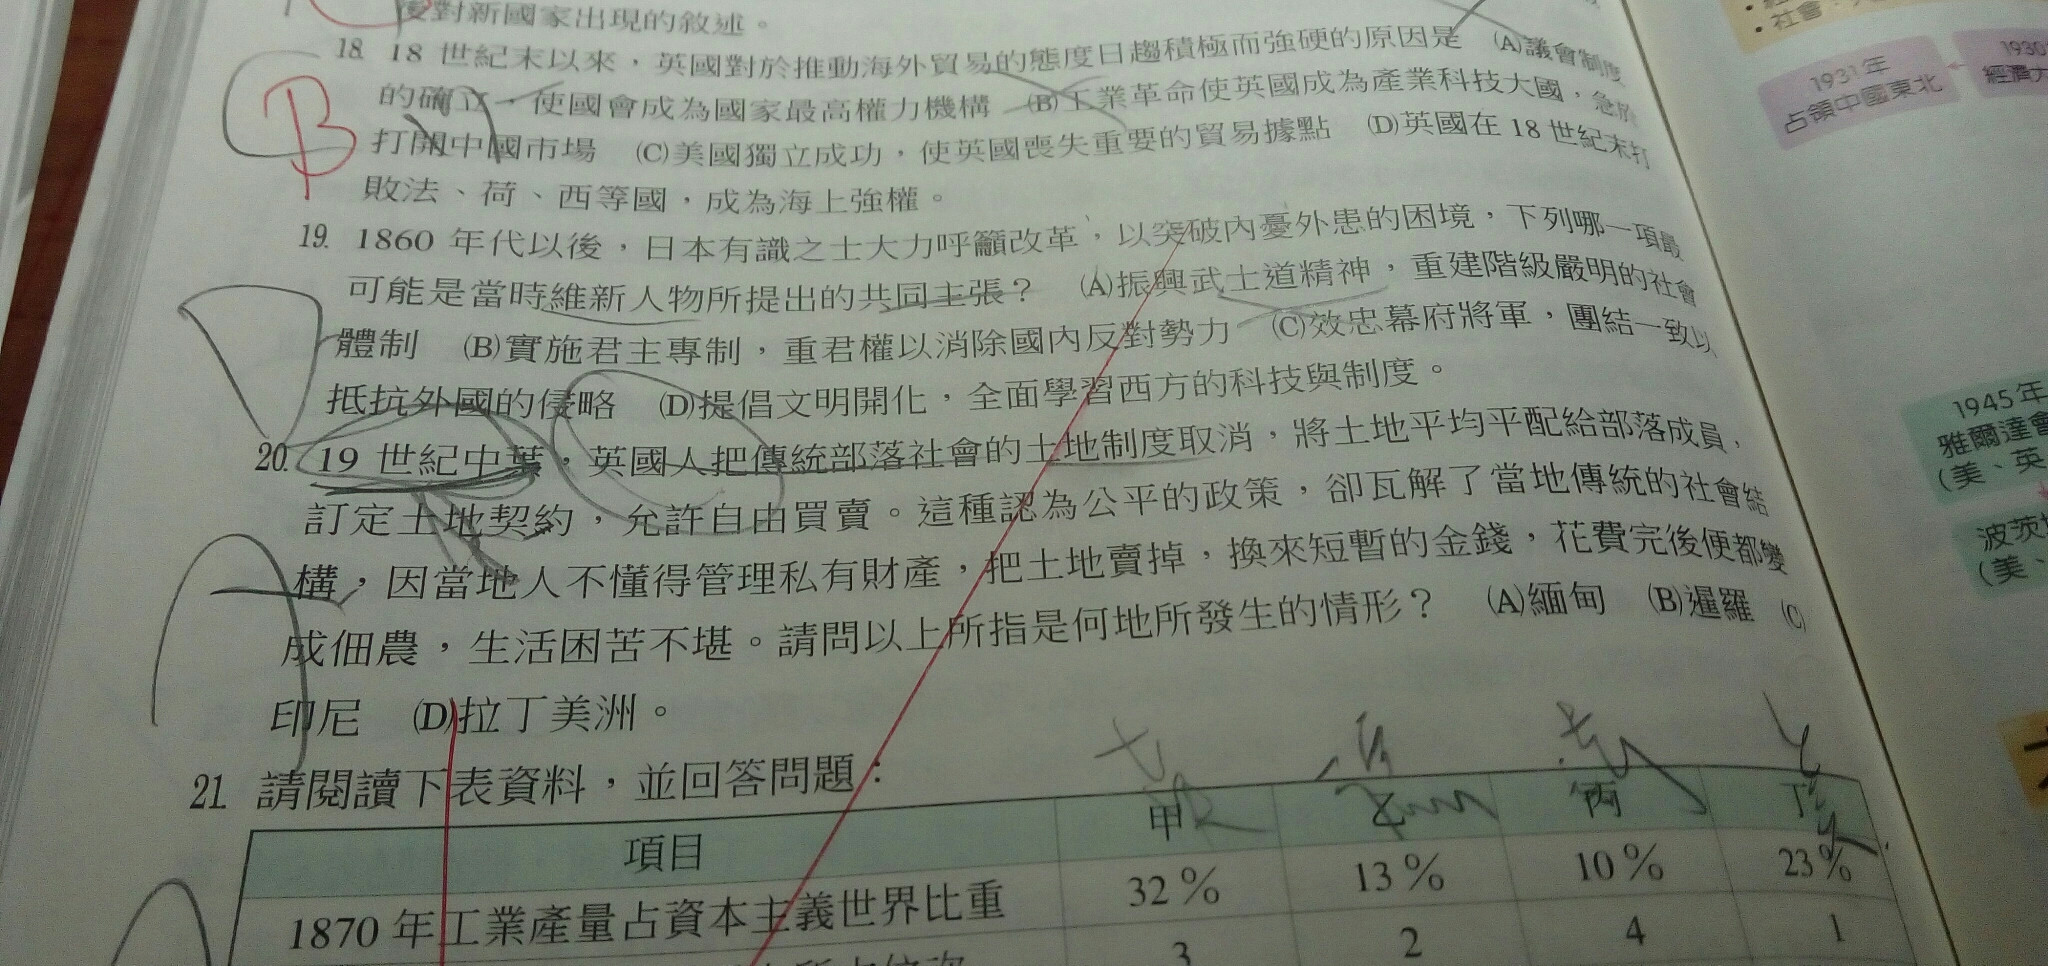 後對新國家出現的敘述。
18. 18 世紀末以來，英國對於推動海外貿易的態度日趨積極而強硬的原因是 (A)議會制度
的確立，使國會成為國家最高權力機構 (B)工業革命使英國成為產業科技大國，急於
打開中國市場 (C)美國獨立成功，使英國喪失重要的貿易據點 (D)英國在 18 世紀末打
敗法、荷、西等國，成為海上強權。
B
19. 1860 年代以後，日本有識之士大力呼籲改革，以突破內憂外患的困境，下列哪一項最
可能是當時維新人物所提出的共同主張？ (A)振興武士道精神，重建階級嚴明的社會
體制 (B)實施君主專制，重君權以消除國內反對勢力 (C)效忠幕府將軍，團結一致以
抵抗外國的侵略 (D)提倡文明開化，全面學習西方的科技與制度。
20. 19 世紀中葉，英國人把傳統部落社會的土地制度取消，將土地平均平配給部落成員，
訂定土地契約，允許自由買賣。這種認為公平的政策，卻瓦解了當地傳統的社會結
構，因當地人不懂得管理私有財產，把土地賣掉，換來短暫的金錢，花費完後便都變
成佃農，生活困苦不堪。請問以上所指是何地所發生的情形？ (A)緬甸 (B)暹羅 (C)
印尼 (D)拉丁美洲。
21. 請閱讀下表資料，並回答問題：
項目 甲 乙 丙 丁
1870 年工業產量占資本主義世界比重 32% 13% 10% 23%
3 2 4 1
社會
1931年
占領中國東北
1930
經濟大
1945年
雅爾達會
(美、英
波茨坦
(美、